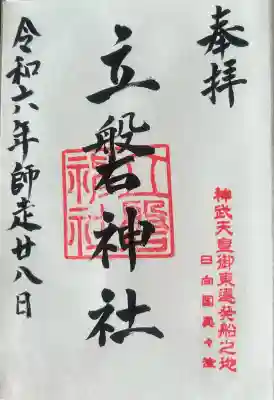 奉拝
神武天皇御東遷発船之地
日向國美々津
立磐神社
立磐神社
令和六年師走廿八日